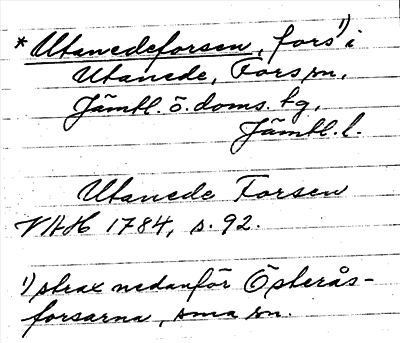 * Utanedeforsen, fors ¹) i
Utanede, Fors sn,
Jämtl. ö. doms. tg,
Jämtl. l.
Utanede Forsen
VAH 1784, s. 92.
¹) strax nedanför Österås-
forsarna, sma sn.